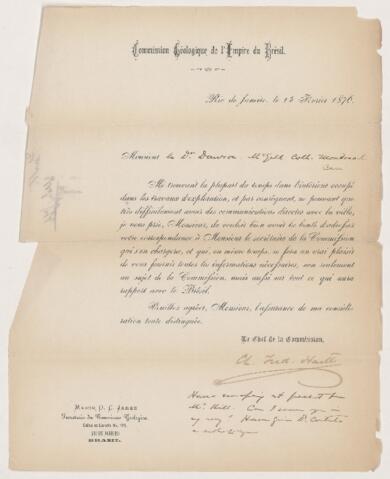 Commission Géologique de l'Empire du Brésil.
Rio de Janeiro, le 15 Février 1876.
Monsieur le Dr Dawson McGill Coll. Montreal
Can
Me trouvant la plupart du temps dans l'intérieur occupé
dans les travaux d'exploration, et par conséquent, ne pouvant que
très difficilement avoir des communications directes avec la ville,
je vous prie, Monsieur, de vouloir bien avoir la bonté d'adresser
votre correspondance à Monsieur le secrétaire de la Commission
qui s'en chargera, et qui, en même temps, se fera un vrai plaisir
de vous fournir toutes les informations nécessaires, non seulement
au sujet de la Commission, mais aussi sur tout ce qui aura
rapport avec le Brésil.
Veuillez agréer, Monsieur, l'assurance de ma considé-
ration toute distinguée.
Le Chef de la Commission,
Ch. Fred. Hartt
Major O. C. James
Secrétaire da Commissão Geologica.
Caixa no Correio No.
RIO DE JANEIRO
BRAZIL.
at present for
Mr. Can I serve you in
any way?